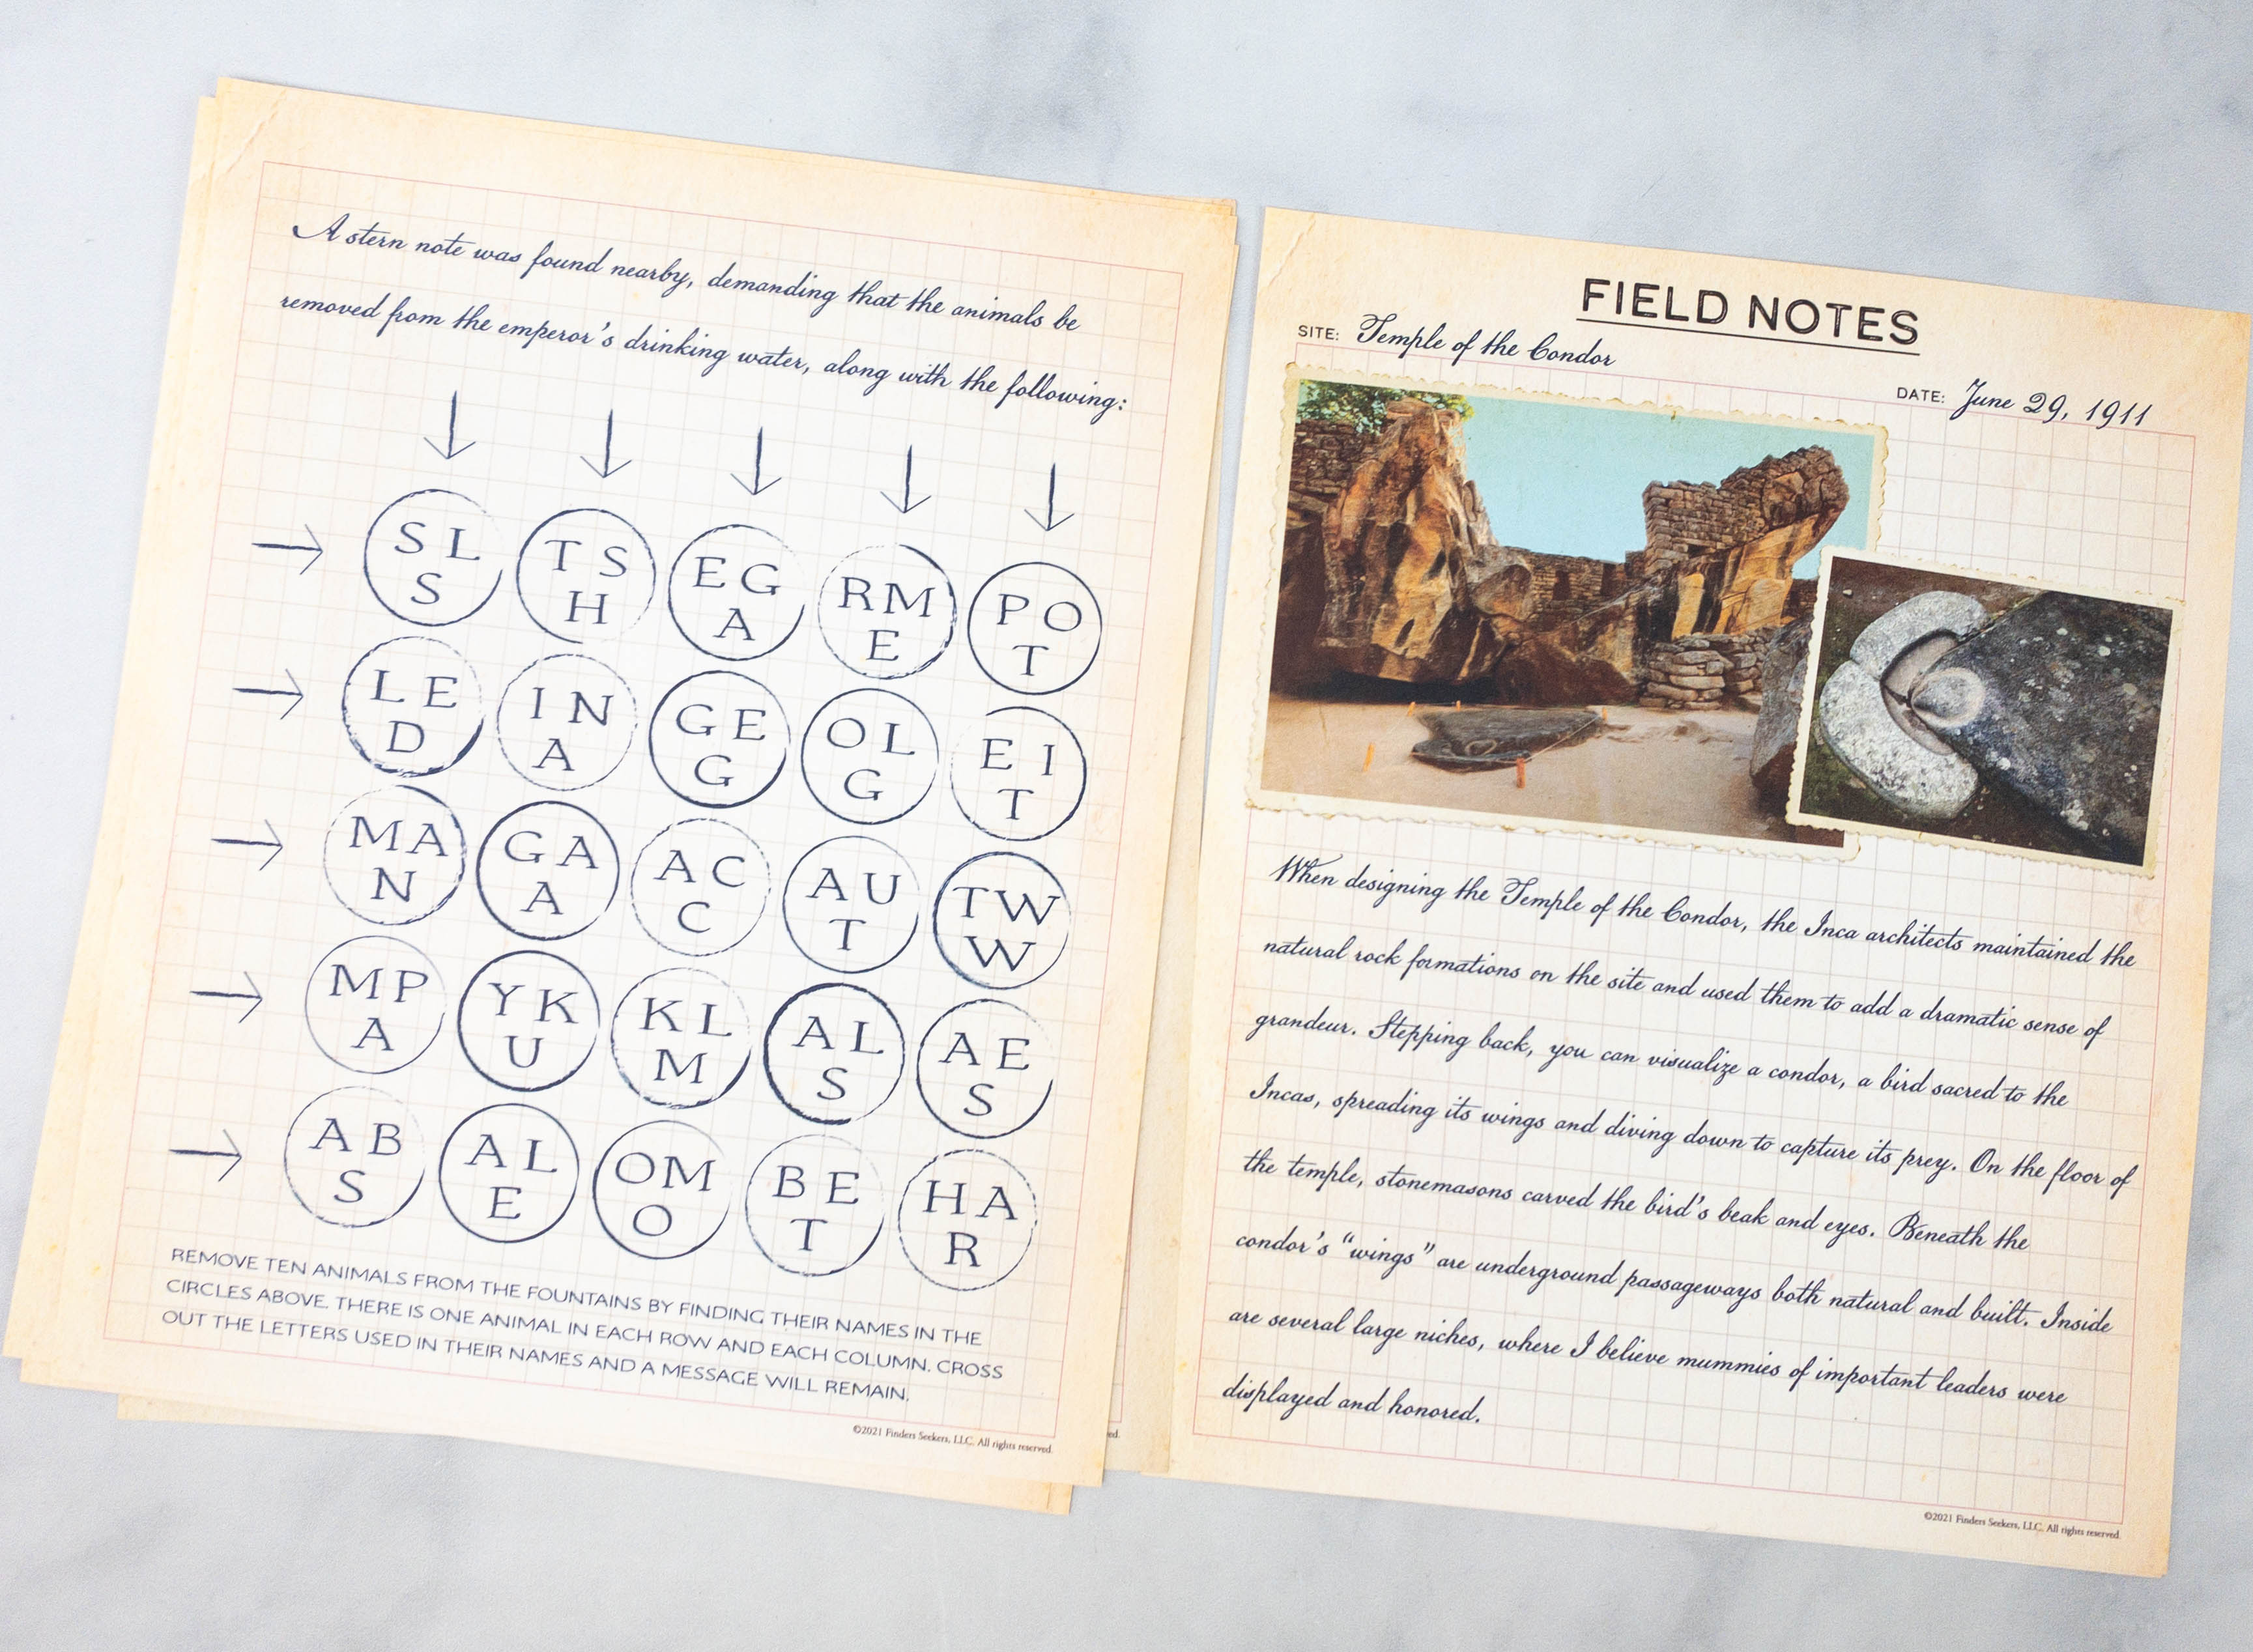 A stern note was found nearby, demanding that the animals be
removed from the emperor's drinking water, along with the following:
S L T S E G R M P O
S H A E T
L E I N G E O L E I
D A G G T
M A G A A C A U T W
N A C T W
M P Y K K L A L A E
A U M S S
A B A L O M B E H A
S E O T R
REMOVE TEN ANIMALS FROM THE FOUNTAINS BY FINDING THEIR NAMES IN THE
CIRCLES ABOVE. THERE IS ONE ANIMAL IN EACH ROW AND EACH COLUMN. CROSS
OUT THE LETTERS USED IN THEIR NAMES AND A MESSAGE WILL REMAIN.
©2021 Finders Seekers, LLC. All rights reserved.
ed.
FIELD NOTES
SITE: Temple of the Condor
DATE: June 29, 1911
When designing the Temple of the Condor, the Inca architects maintained the
natural rock formations on the site and used them to add a dramatic sense of
grandeur. Stepping back, you can visualize a condor, a bird sacred to the
Incas, spreading its wings and diving down to capture its prey. On the floor of
the temple, stonemasons carved the bird's beak and eyes. Beneath the
condor's "wings" are underground passageways both natural and built. Inside
are several large niches, where I believe mummies of important leaders were
displayed and honored.
©2021 Finders Seekers, LLC. All rights reserved.